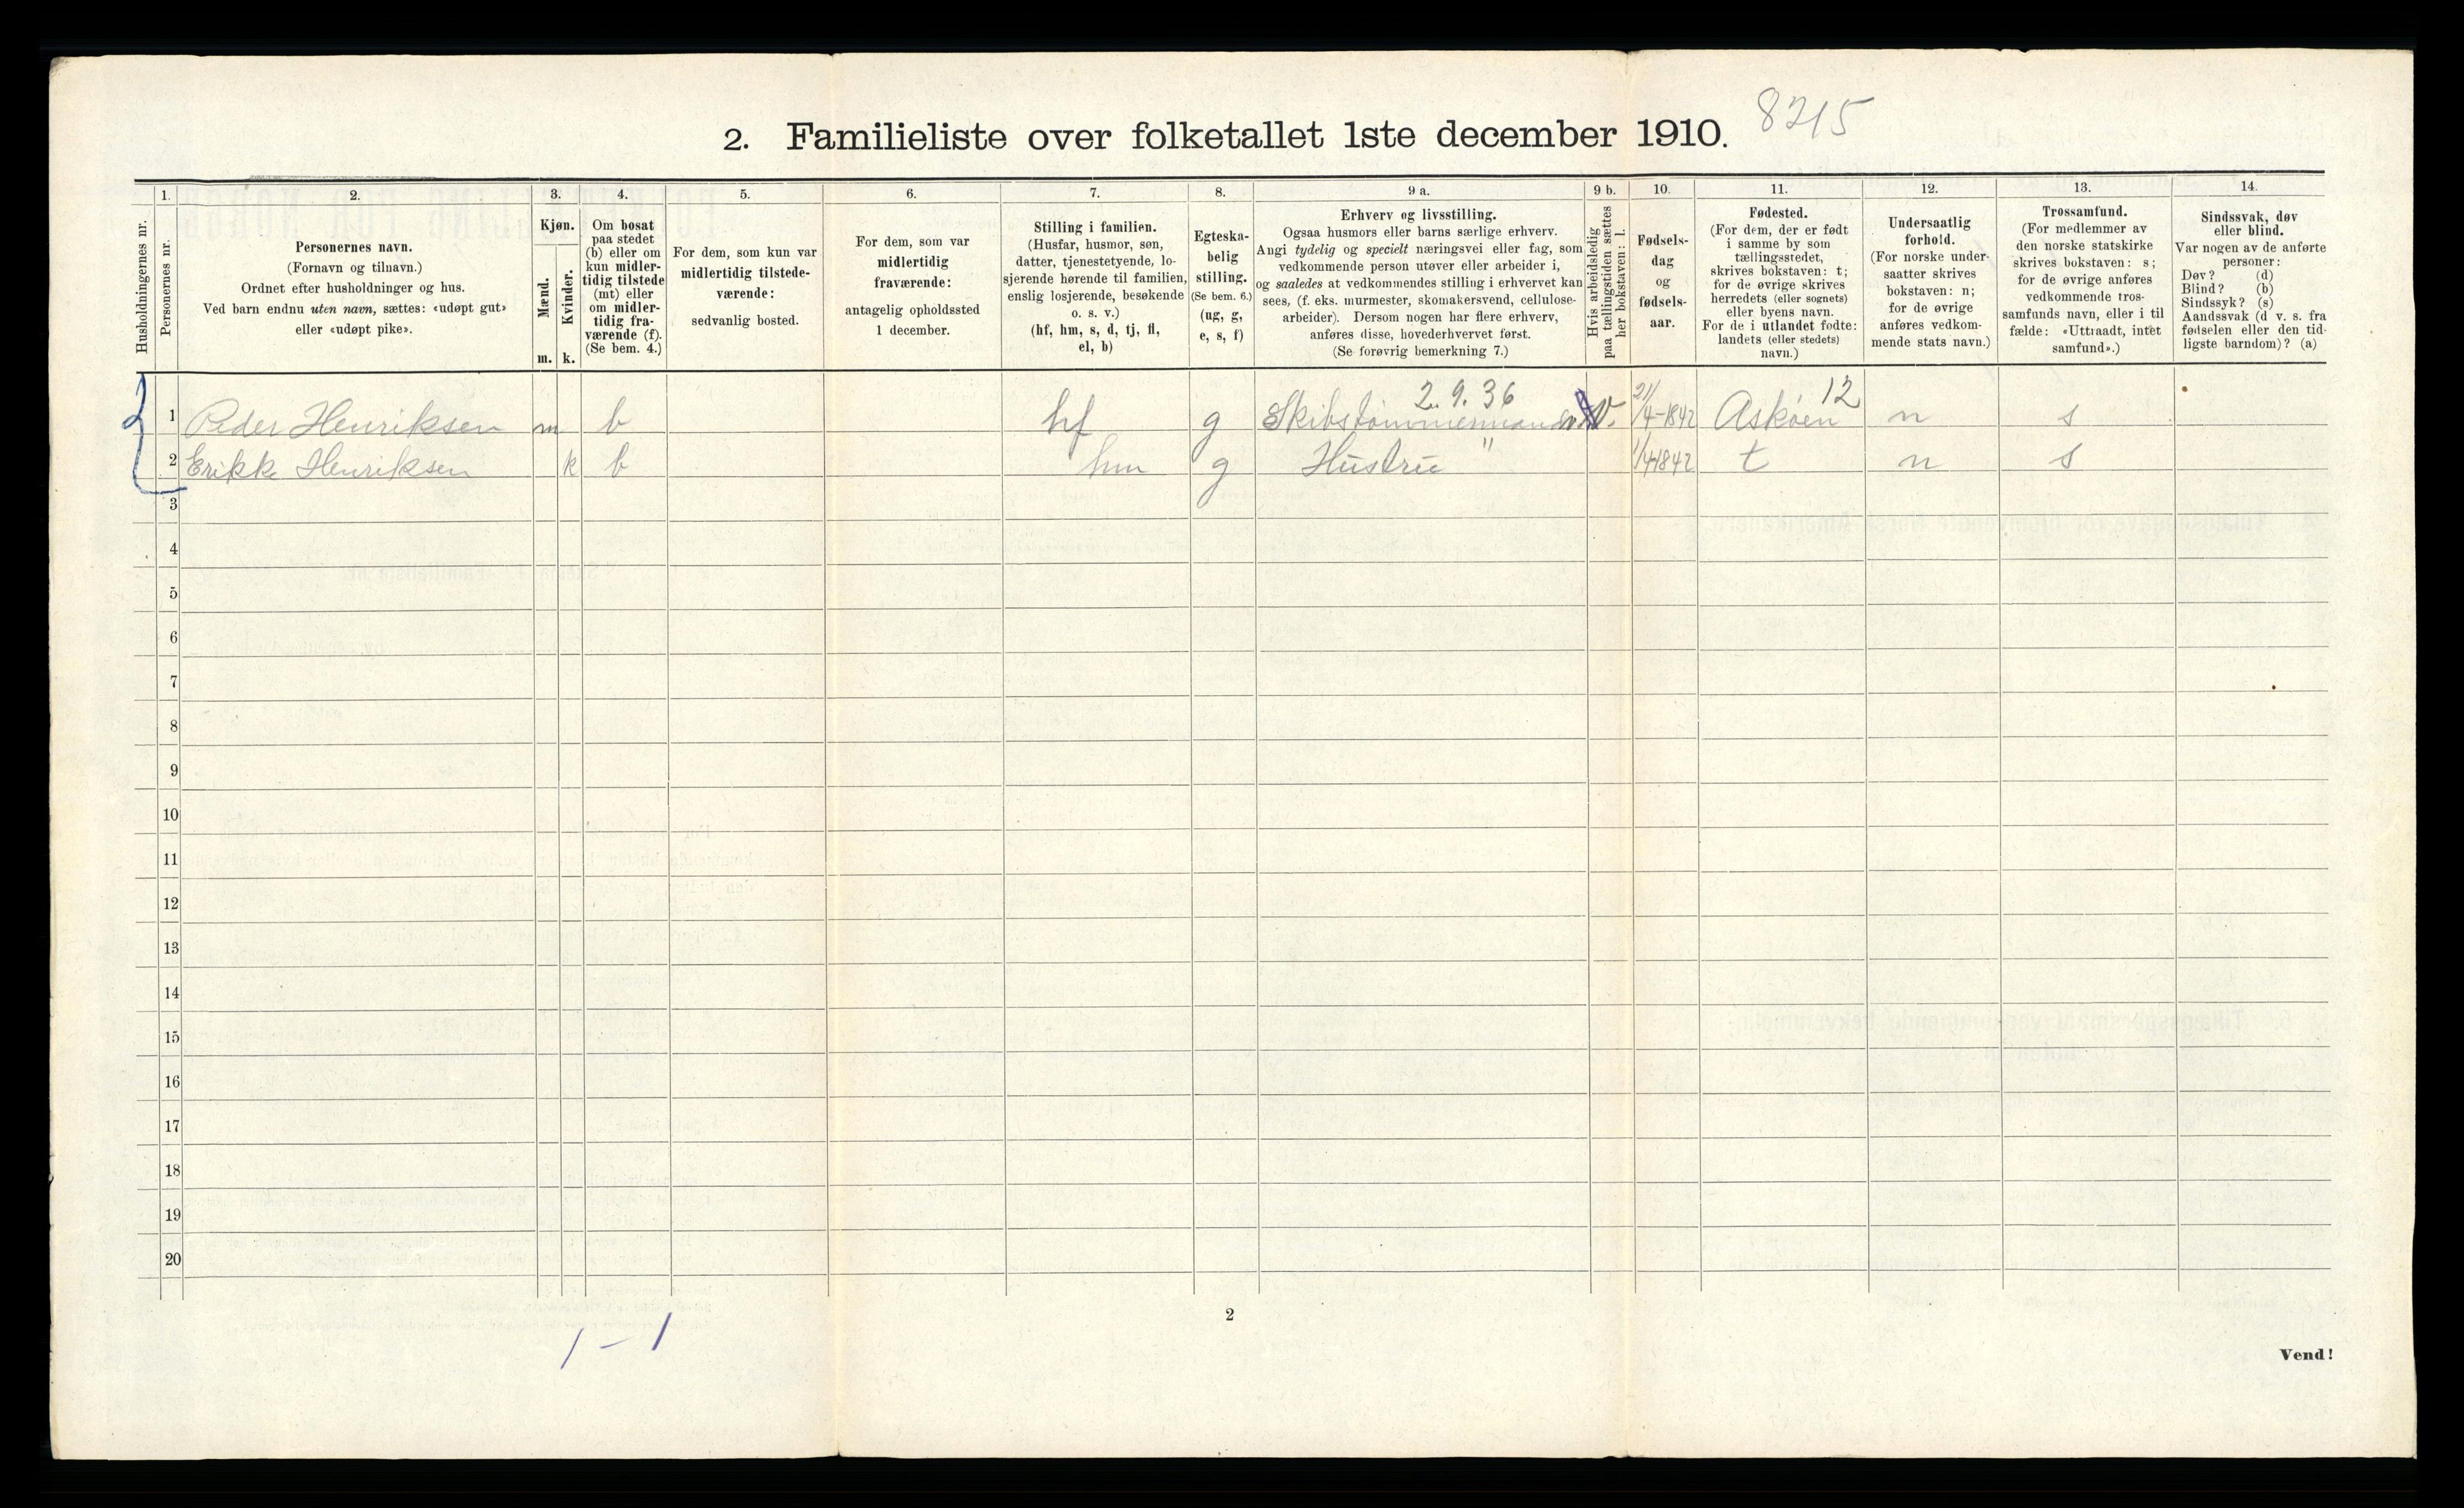 8215
2. Familieliste over folketallet 1ste december 1910.
Husholdningernes nr.
1.
Personernes nr.
2.
Personernes navn.
(Fornavn og tilnavn.)
Ordnet efter husholdninger og hus.
Ved barn endnu uten navn, sættes: «udøpt gut»
eller «udøpt pike».
3.
Kjøn.
Mænd.
Kvinder.
m. k.
4.
Om bosat
paa stedet
(b) eller om
kun midler-
tidig tilstede
(mt) eller
om midler-
tidig fra-
værende (f).
(Se bem. 4.)
5.
For dem, som kun var
midlertidig tilstede-
værende:
sedvanlig bosted.
6.
For dem, som var
midlertidig
fraværende:
antagelig opholdssted
1 december.
7.
Stilling i familien.
(Husfar, husmor, søn,
datter, tjenestetyende, lo-
sjerende hørende til familien,
enslig losjerende, besøkende
o. s. v.)
(hf, hm, s, d, tj, fl,
el, b)
8.
Egteska-
belig
stilling.
(Se bem. 6.)
(ug, g,
e, s, f)
9 a.
Erhverv og livsstilling.
Ogsaa husmors eller barns særlige erhverv.
Angi tydelig og specielt næringsvei eller fag, som
vedkommende person utøver eller arbeider i,
og saaledes at vedkommendes stilling i erhvervet kan
sees, (f. eks. murmester, skomakersvend, cellulose-
arbeider). Dersom nogen har flere erhverv,
anføres disse, hovederhvervet først.
(Se forøvrig bemerkning 7.)
9 b.
Hvis arbeidsledig
paa tællingstiden sættes
her bokstaven: l.
10.
Fødsels-
dag
og
fødsels-
aar.
11.
Fødested.
(For dem, der er født
i samme by som
tællingsstedet,
skrives bokstaven: t;
for de øvrige skrives
herredets (eller sognets)
eller byens navn.
For de i utlandet fødte:
landets (eller stedets)
navn.)
12.
Undersaatlig
forhold.
(For norske under-
saatter skrives
bokstaven: n;
for de øvrige
anføres vedkom-
mende stats navn.)
13.
Trossamfund.
(For medlemmer av
den norske statskirke
skrives bokstaven: s;
for de øvrige anføres
vedkommende tros-
samfunds navn, eller i til
fælde: «Uttraadt, intet
samfund».)
14.
Sindssvak, døv
eller blind.
Var nogen av de anførte
personer:
Døv? (d)
Blind? (b)
Sindssyk? (s)
Aandssvak (d v. s. fra
fødselen eller den tid-
ligste barndom)? (a)
2.9.36 12
1 Peder Henriksen m b hf g Skibstømmermand 21/4-1842 Askøen n s
2 Erikke Henriksen k b hm g Hustru " 1/4 1842 t n s
3
4
5
6
7
8
9
10
11
12
13
14
15
16
17
18
19
20
2
1 - 1
Vend!